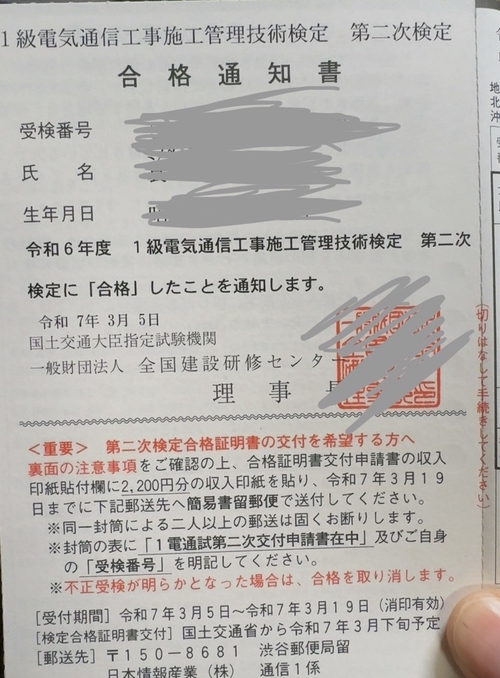 1級電気通信工事施工管理技術検定　第二次検定
合格通知書
受検番号
氏　名
生年月日
令和6年度　1級電気通信工事施工管理技術検定　第二次
検定に「合格」したことを通知します。
令和 7年 3月 5日
国土交通大臣指定試験機関
一般財団法人　全国建設研修センター
理　事
＜重要＞　第二次検定合格証明書の交付を希望する方へ
裏面の注意事項をご確認の上、合格証明書交付申請書の収入
印紙貼付欄に2,200円分の収入印紙を貼り、令和7年3月19
日までに下記郵送先へ簡易書留郵便で送付してください。
※同一封筒による二人以上の郵送は固くお断りします。
※封筒の表に「1電通試第二次交付申請書在中」及びご自身
の「受検番号」を明記してください。
※不正受検が明らかとなった場合は、合格を取り消します。
[受付期間] 令和7年3月5日～令和7年3月19日（消印有効）
[検定合格証明書交付] 国土交通省から令和7年3月下旬予定
[郵送先] 〒150－8681　渋谷郵便局留
日本情報産業（株）　通信1係
(切りはなして手続きしてください)
地
北
沖